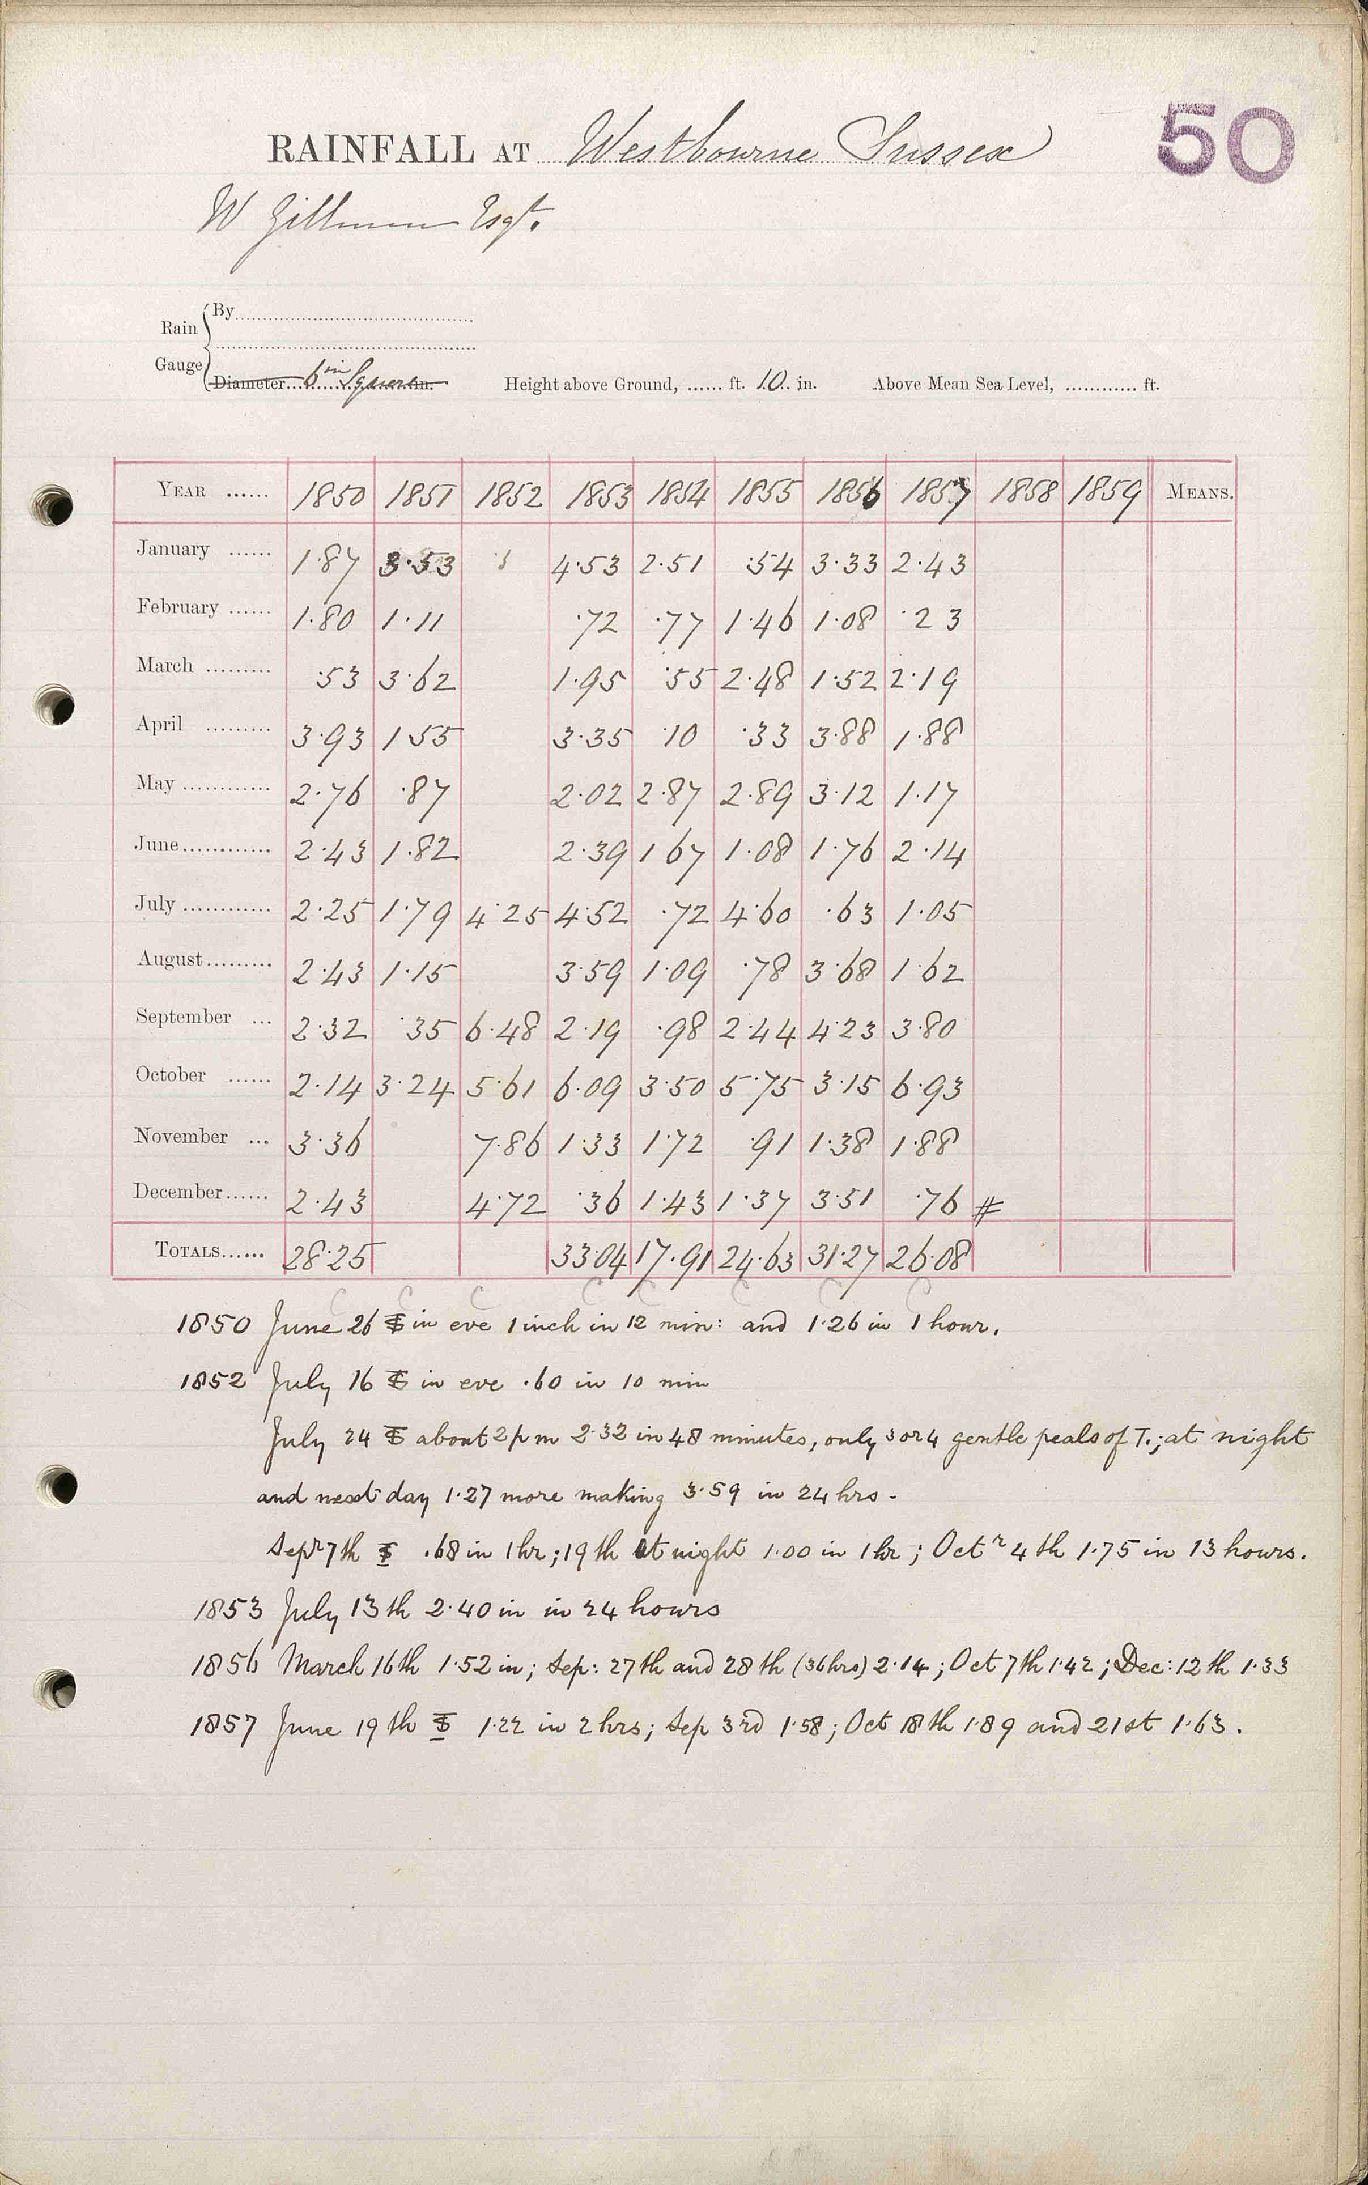 RAINFALL AT Westbourne Sussex
50
W Gillman Esqr.
Rain Gauge { By
Diameter 6 in Square in. Height above Ground, ...... ft. 10 in. Above Mean Sea Level, ............ ft.
YEAR ...... 1850 1851 1852 1853 1854 1855 1856 1857 1858 1859 MEANS.
January ...... 1.87 3.53 4.53 2.51 .54 3.33 2.43
February ...... 1.80 1.11 .72 .77 1.46 1.08 .23
March ......... .53 3.62 1.95 .55 2.48 1.52 2.19
April ......... 3.93 1 55 3.35 10 .33 3.88 1.88
May ............ 2.76 .87 2.02 2.87 2.89 3.12 1.17
June............ 2.43 1.82 2.39 1 67 1.08 1.76 2.14
July ............ 2.25 1.79 4.25 4.52 .72 4.60 .63 1.05
August......... 2.43 1.15 3.59 1.09 .78 3.68 1.62
September ... 2.32 .35 6.48 2.19 .98 2.44 4.23 3.80
October ...... 2.14 3.24 5.61 6.09 3.50 5.75 3.15 6.93
November ... 3.36 7.86 1.33 1.72 .91 1.38 1.88
December...... 2.43 4.72 .36 1.43 1.37 3.51 .76 #
TOTALS...... 28.25 33.04 17.91 24.63 31.27 26.08
1850 June 26 in eve 1 inch in 12 min: and 1.26 in 1 hour.
1852 July 16 in eve .60 in 10 min
July 24 about 2 p m 2.32 in 48 minutes, only 3 or 4 gentle peals of T.; at night
and next day 1.27 more making 3.59 in 24 hrs.
Sepr 7th .68 in 1 hr; 19th at night 1.00 in 1 hr; Octr 4th 1.75 in 13 hours.
1853 July 13th 2.40 in in 24 hours
1856 March 16th 1.52 in; Sep: 27th and 28th (36hrs) 2.14; Oct 7th 1.42; Dec: 12th 1.33
1857 June 19th 1.22 in 2 hrs; Sep 3rd 1.58; Oct 18th 1.89 and 21st 1.63.